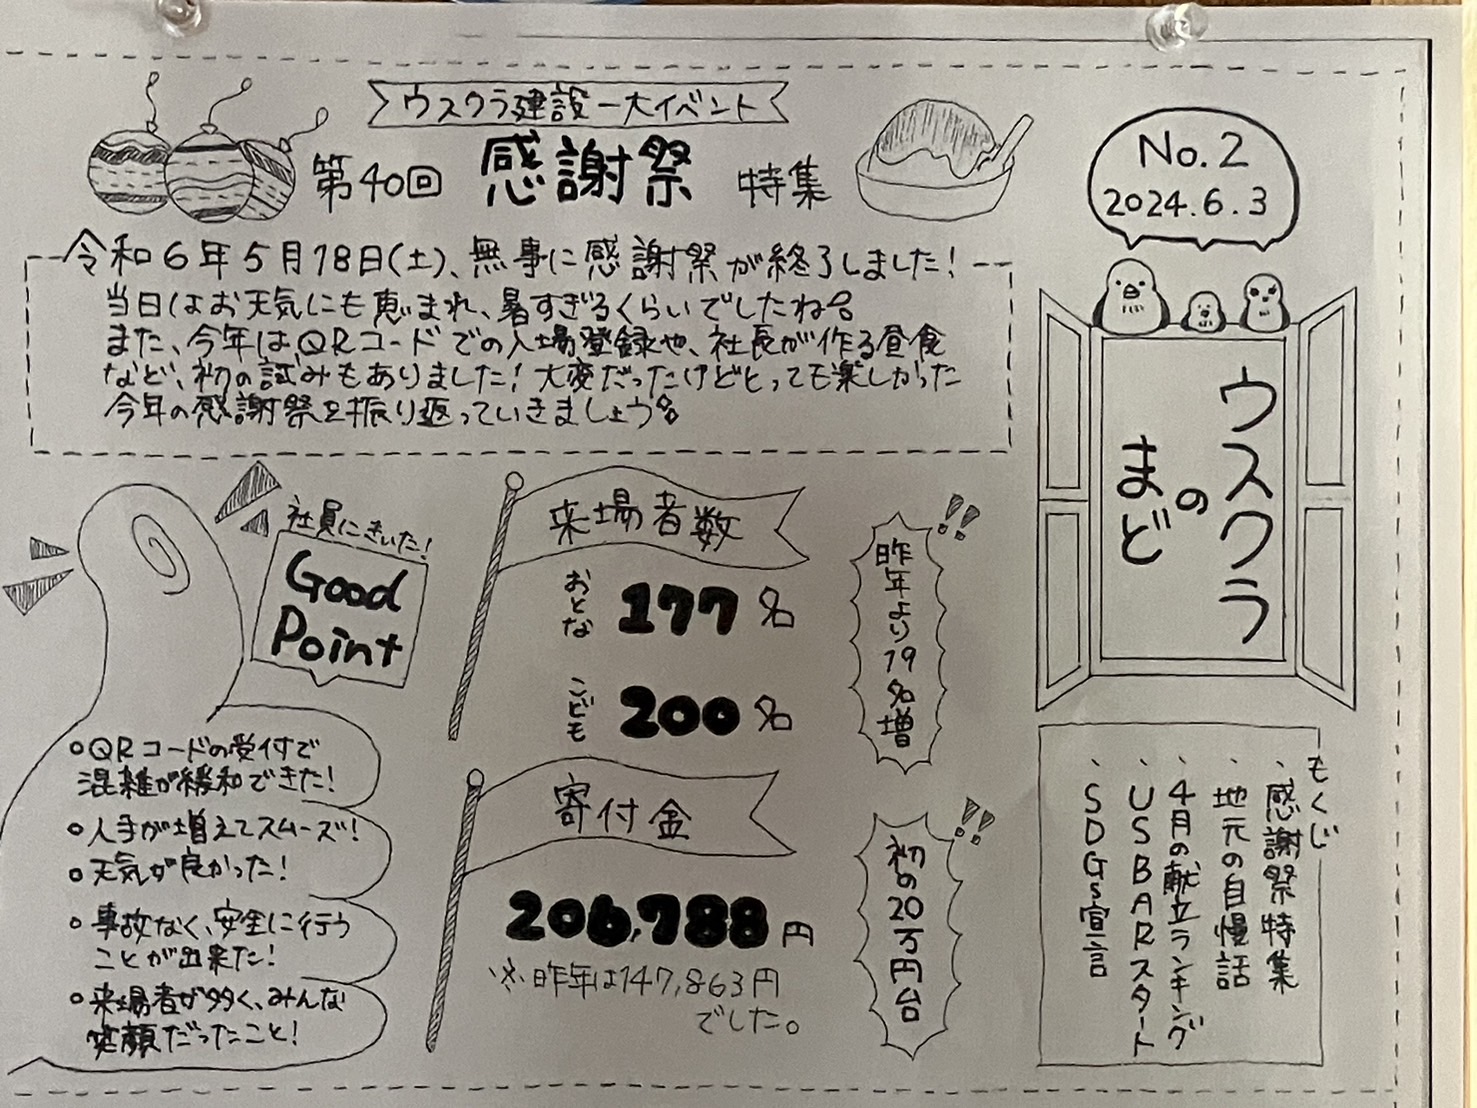 ウスクラ建設一大イベント
第40回 感謝祭 特集
No.2
2024.6.3
ウスクラ
の
まど
令和6年5月18日(土)、無事に感謝祭が終了しました!
当日はお天気にも恵まれ、暑すぎるくらいでしたね。
また、今年は、QRコードでの入場登録や、社長が作る昼食
など、初の試みもありました!大変だったけどとっても楽しかった
今年の感謝祭を振り返っていきましょう。
社員にきいた!
Good
Point
○QRコードの受付で
混雑が緩和できた!
○人手が増えてスムーズ!
○天気が良かった!
○事故なく、安全に行う
ことが出来た!
○来場者が多く、みんな
笑顔だったこと!
来場者数
おとな 177名
こども 200名
昨年より19名増
!!
寄付金
206,788円
※昨年は147,863円
でした。
初の20万円台
!!
もくじ
、感謝祭特集
、地元の自慢話
、4月の献立ランキング
、USBARスタート
、SDGs宣言